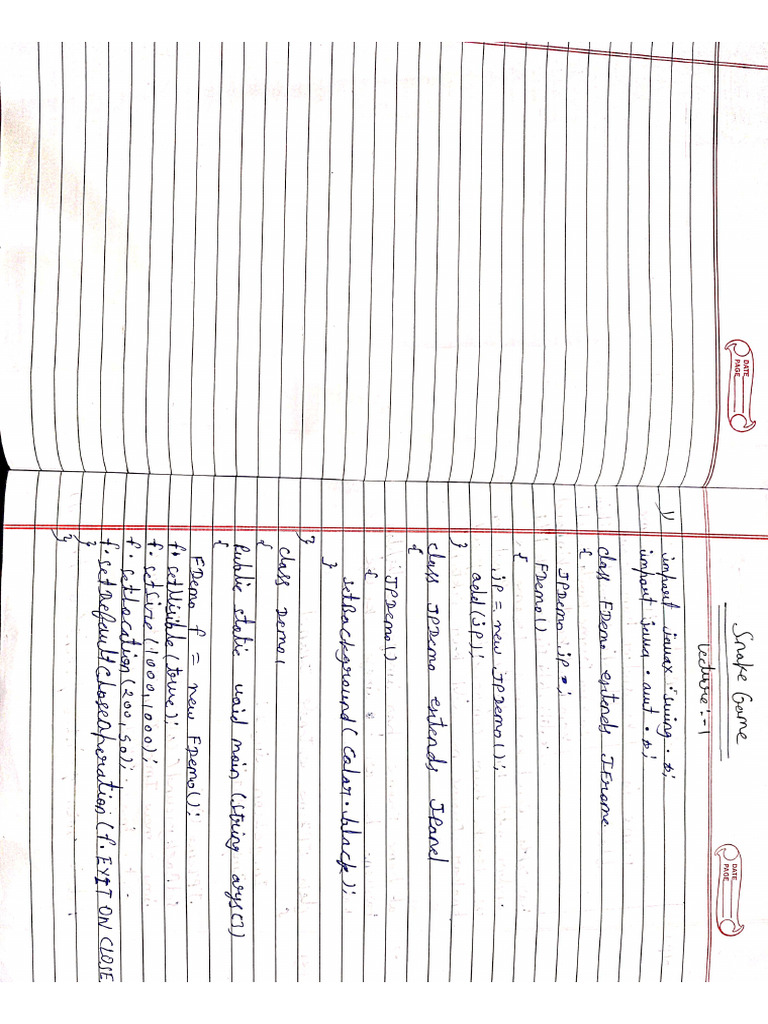 DATE
PAGE
Snake Game
DATE
PAGE
Lecture :- 1
1) import javax.swing.*;
import java.awt.*;
class FDemo extends JFrame
{
JPDemo jp;
FDemo()
{
jp = new JPDemo();
add(jp);
}
class JPDemo extends JPanel
{
JPDemo()
{
setBackground(Color.black);
}
}
class Demo1
{
Public static void main (String args[])
{
FDemo f = new FDemo();
f.setVisible(true);
f.setSize(1000,1000);
f.setLocation(200,50);
f.setDefaultCloseOperation(f.EXIT ON CLOSE
}
}